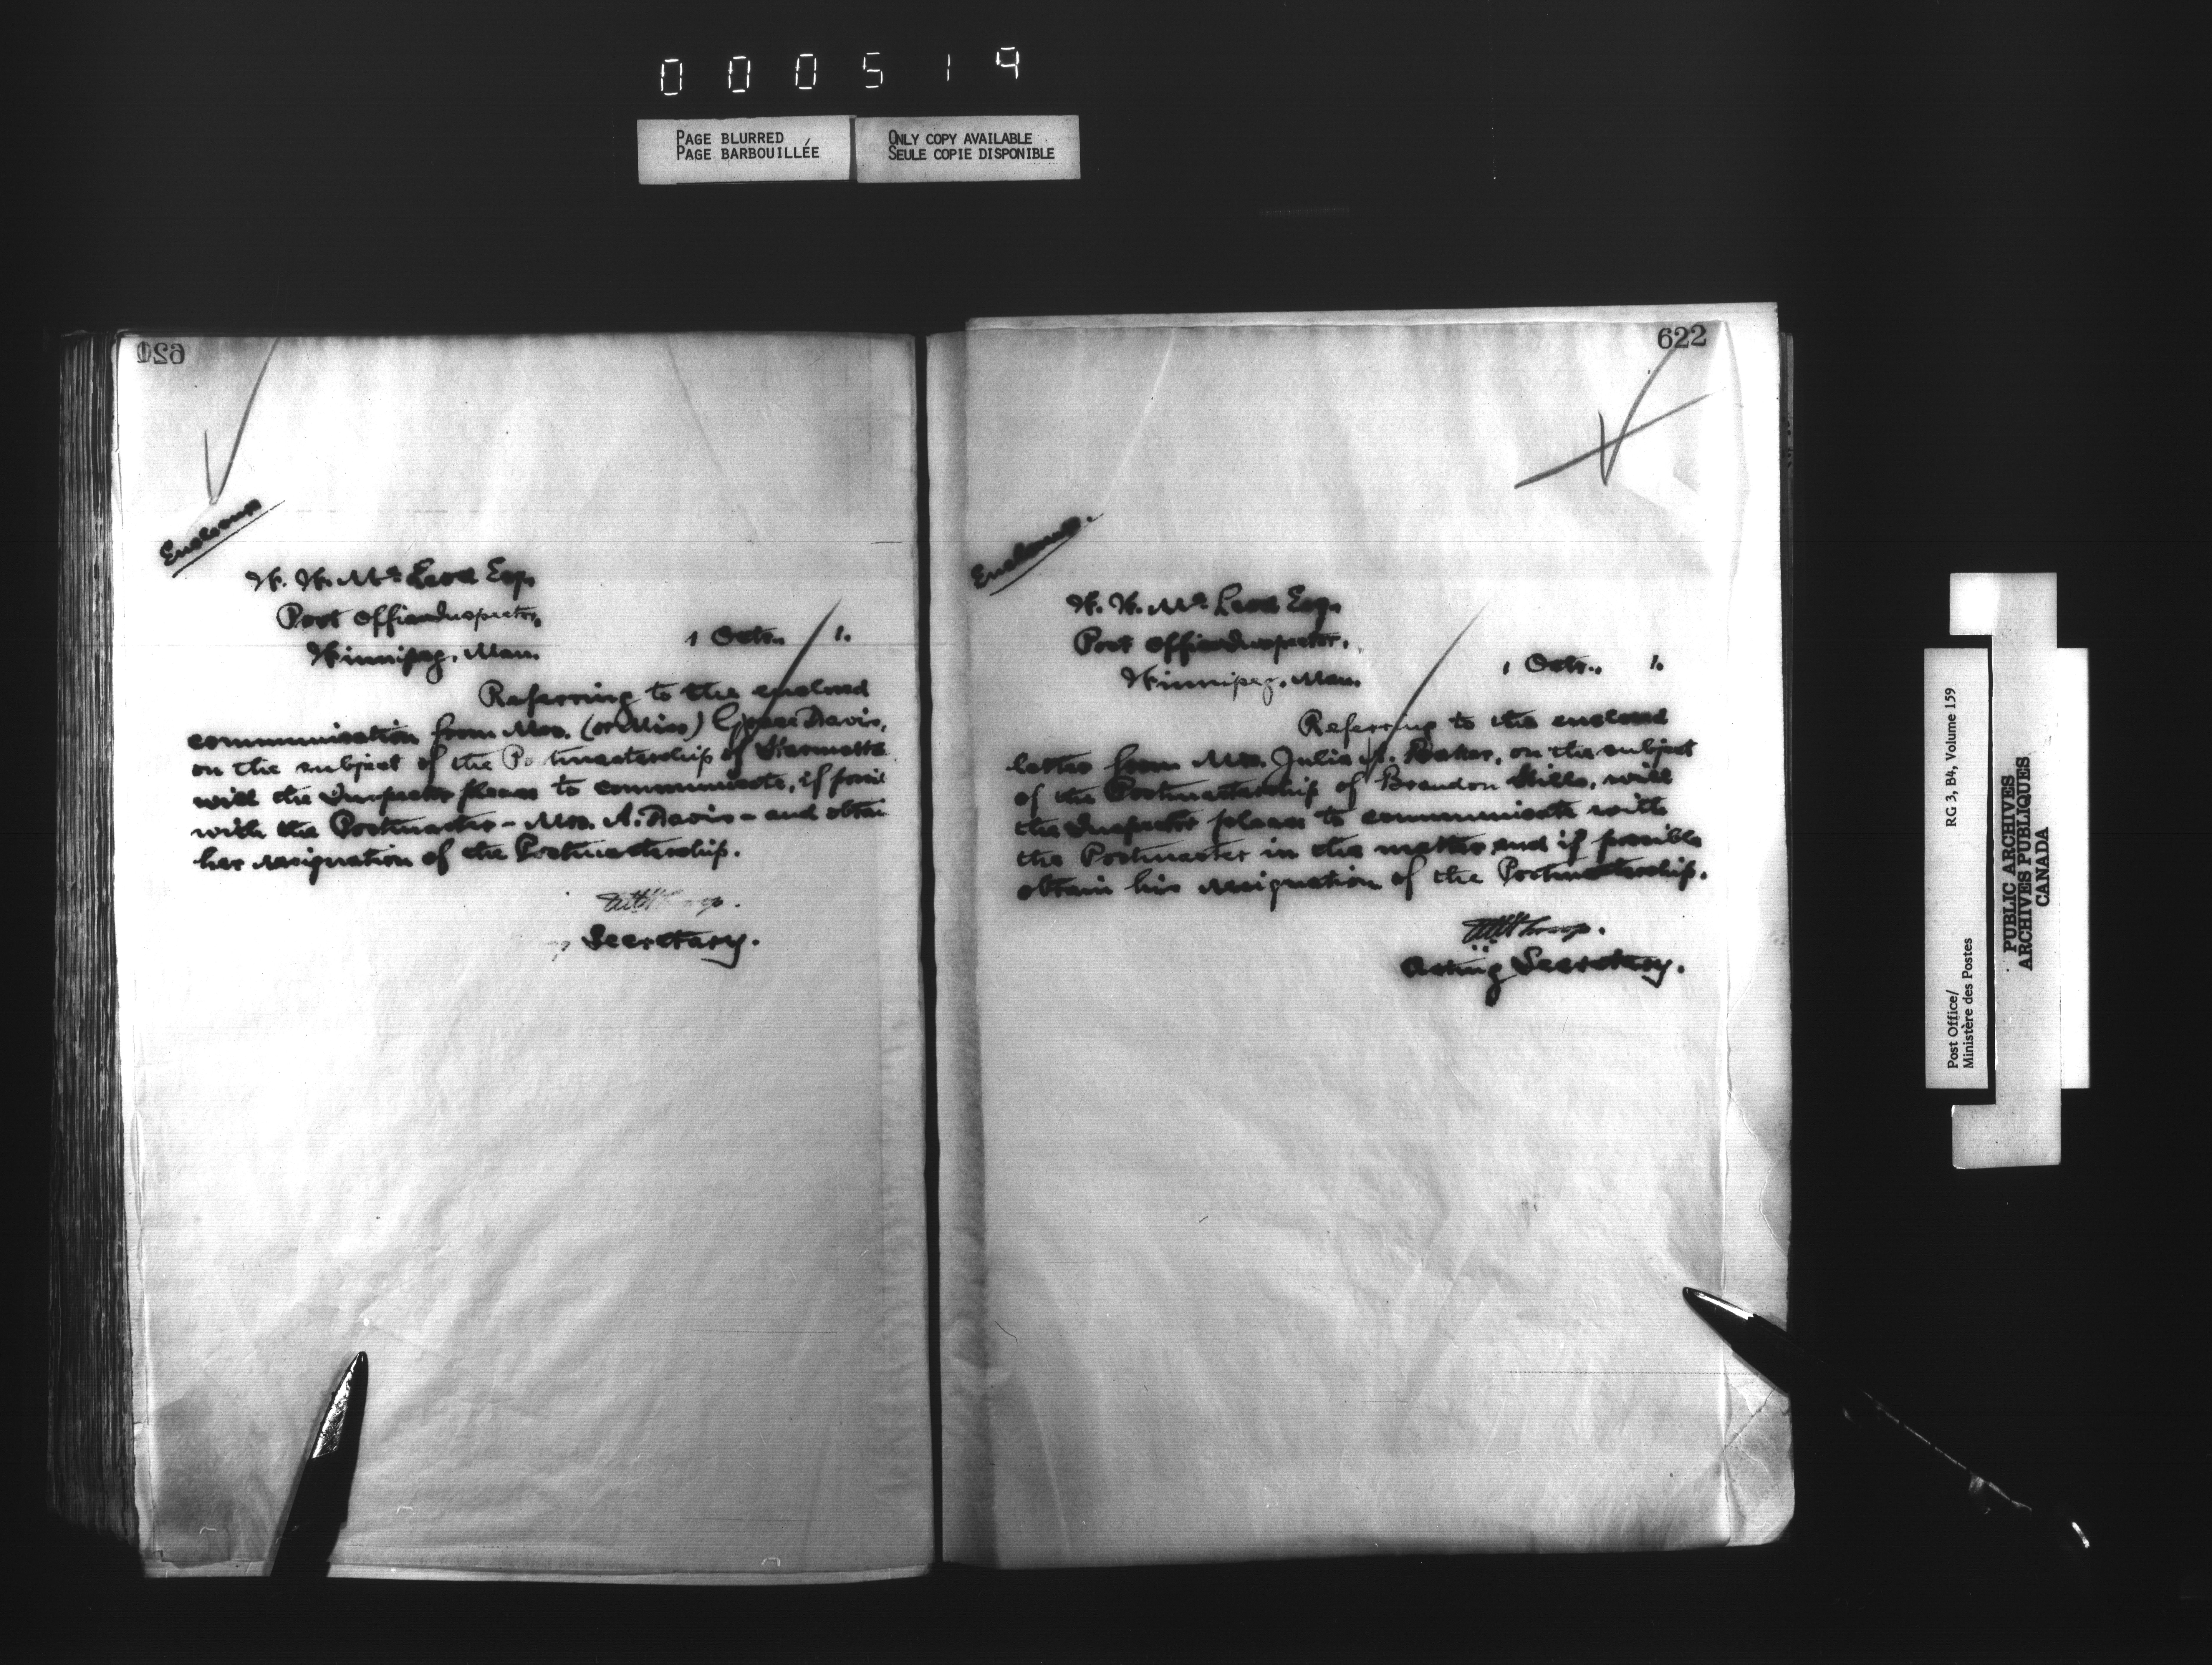 0 0 0 5 1 9
PAGE BLURRED
PAGE BARBOUILLÉE
ONLY COPY AVAILABLE
SEULE COPIE DISPONIBLE
Enclosure
W. W. McLeod Esq.
Post Office Inspector,
Winnipeg, Man.
1 Octr. 1.
Referring to the enclosed
communication from Mrs. (or Miss) Grace Davis,
on the subject of the Po tmastership of
will the Inspector please to communicate, if possi
with the Postmaster - Mrs. A. Davis - and obtai
her resignation of the Postmastership.
Secretary.
622
Enclosure.
W. W. McLeod Esq.
Post Office Inspector,
Winnipeg, Man.
1 Octr. 1.
Referring to the enclosed
letter from Mrs. Julia A. Baker, on the subject
of the Postmastership of Brandon Hills, will
the Inspector please to communicate with
the Postmaster in the matter and if possible
obtain his resignation of the Postmastership.
Acting Secretary.
Post Office/
Ministère des Postes
RG 3, B4, Volume 159
PUBLIC ARCHIVES
ARCHIVES PUBLIQUES
CANADA